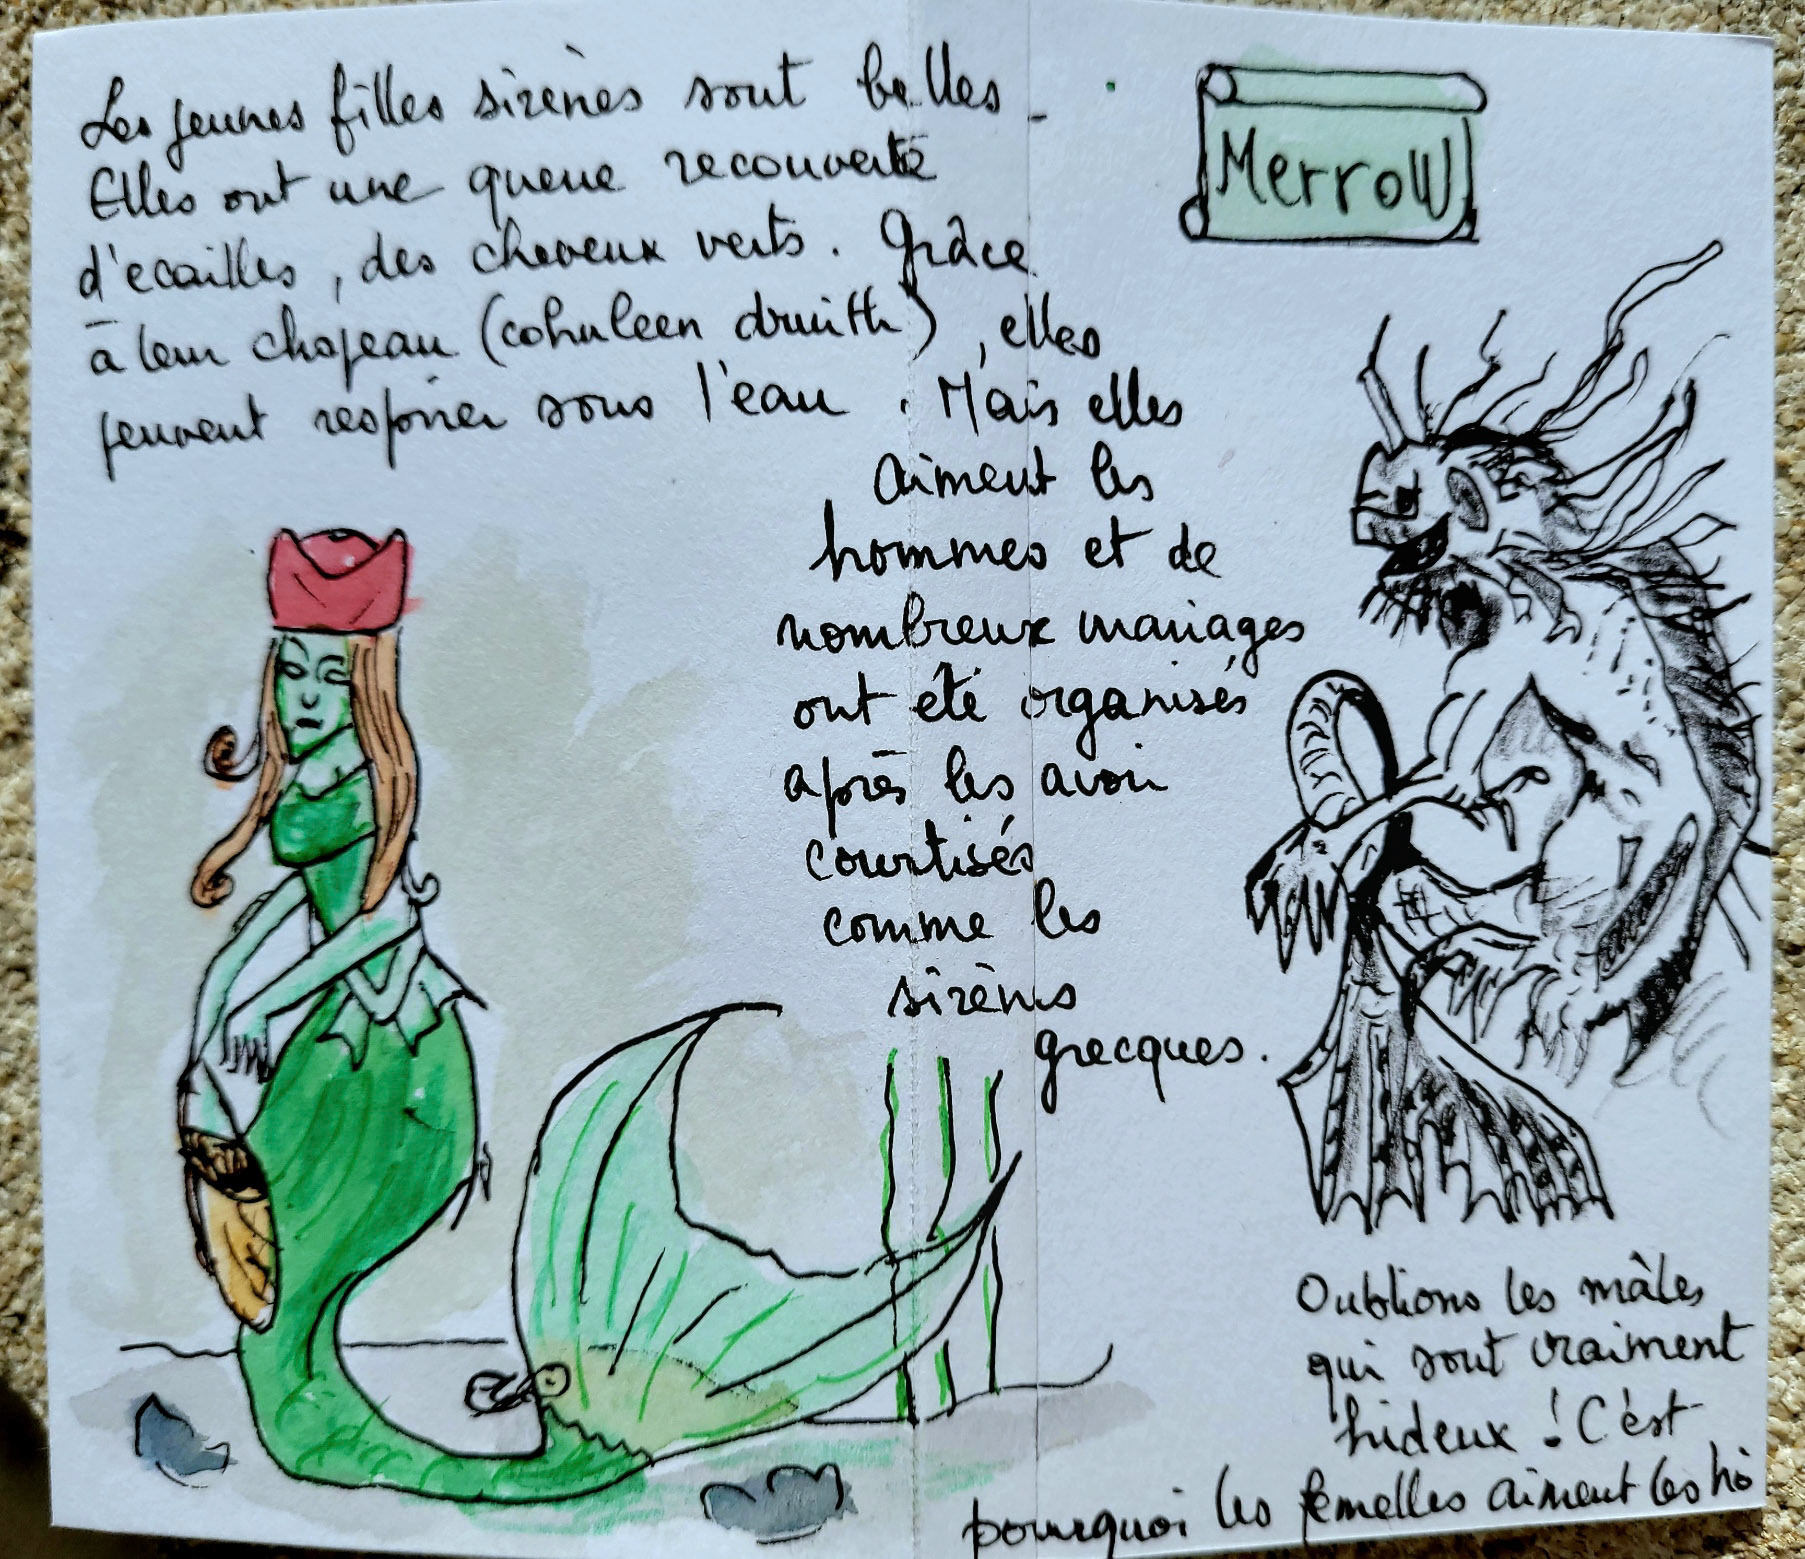 Les jeunes filles sirènes sont belles -
Elles ont une queue recouverte
d'ecailles, des cheveux verts. Grâce
à leur chapeau (cohuleen druith), elles
peuvent respirer sous l'eau. Mais elles
aiment les
hommes et de
nombreux mariages
ont été organisés
après les avoir
courtisés
comme les
sirènes
grecques.
Merrow
Oublions les mâles
qui sont vraiment
hideux ! C'est
pourquoi les femelles aiment les ho